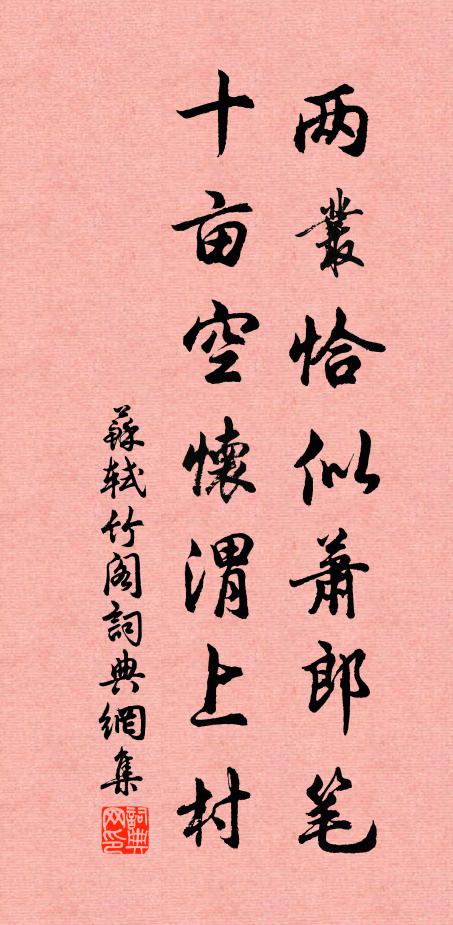 两丛恰似萧郎笔
十亩空怀渭上村
苏轼竹阁词典网集
词典网印